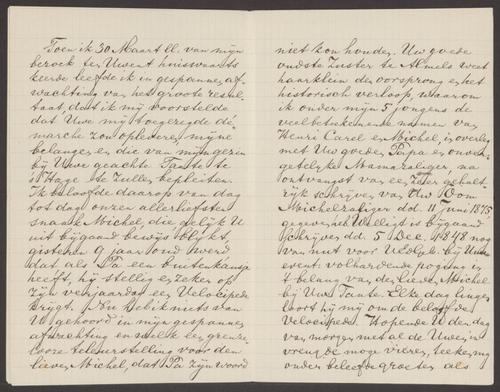 Toen ik 30 Maart ll. van mijn
bezoek te Uwent huiswaarts
keerde leefde ik in gespannen af-
wachting van het groote resul-
taat, dat ik mij voorstelde
dat Uwe mij toegezegde dé-
marche zou opleveren, mijne
belangen en die van mijn gezin
bij Uwe geachte Tante te
's Hage te zullen bepleiten.
Ik beloofde daarop van dag
tot dag onzen allerliefsten
snaak Michel, die gelijk U
uit bijgaand bewijs blijkt,
gisteren 9 jaar oud werd
dat als Pa een buitenkansje
heeft, hij stellig en zeker op
zijn verjaardag een Velocipede
krijgt. Nu heb ik niets van
U gehoord in mijn gespannen
afwachting en welk een grenze-
looze teleurstelling voor den
lieven Michel, dat Pa zijn woord
niet kon houden. Uw goede
oudste Zuster te Almelo weet
haarklein den oorsprong en het
historisch verloop, waarom
ik onder mijn 5 jongens de
veelbeteekenende namen van
Henri Carel en Michel, in overleg
met Uw goeden Papa en onver-
getelijke Mama zaliger, na
ontvangst van een zeer gehalt-
rijk schrijven van Uw Oom
Michel zaliger dd. 11 Juni 1875
gegeven heb. Wellicht is bijgaand
schrijven dd. 5 Dec. 1848 nog
van nut voor UEdGeb. bij Uwe
event. volhardende poging in
't belang van den lieven Michel
bij Uw Tante. Elken dag hinger
loort hij mij om de beloofde
Velocipede. Hopende U den dag
van morgen met al de Uwen in
vreugde moge vieren, teeken ik mij
onder beleefde groeten als